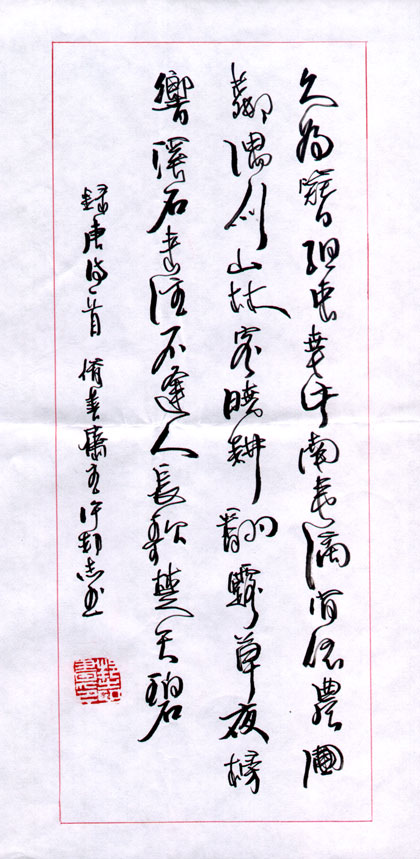 久為簪組束幸此南夷謫閒依農圃
鄰偶似山林客曉耕翻露草夜榜
響溪石來往不逢人長歌楚天碧
録唐詩一首